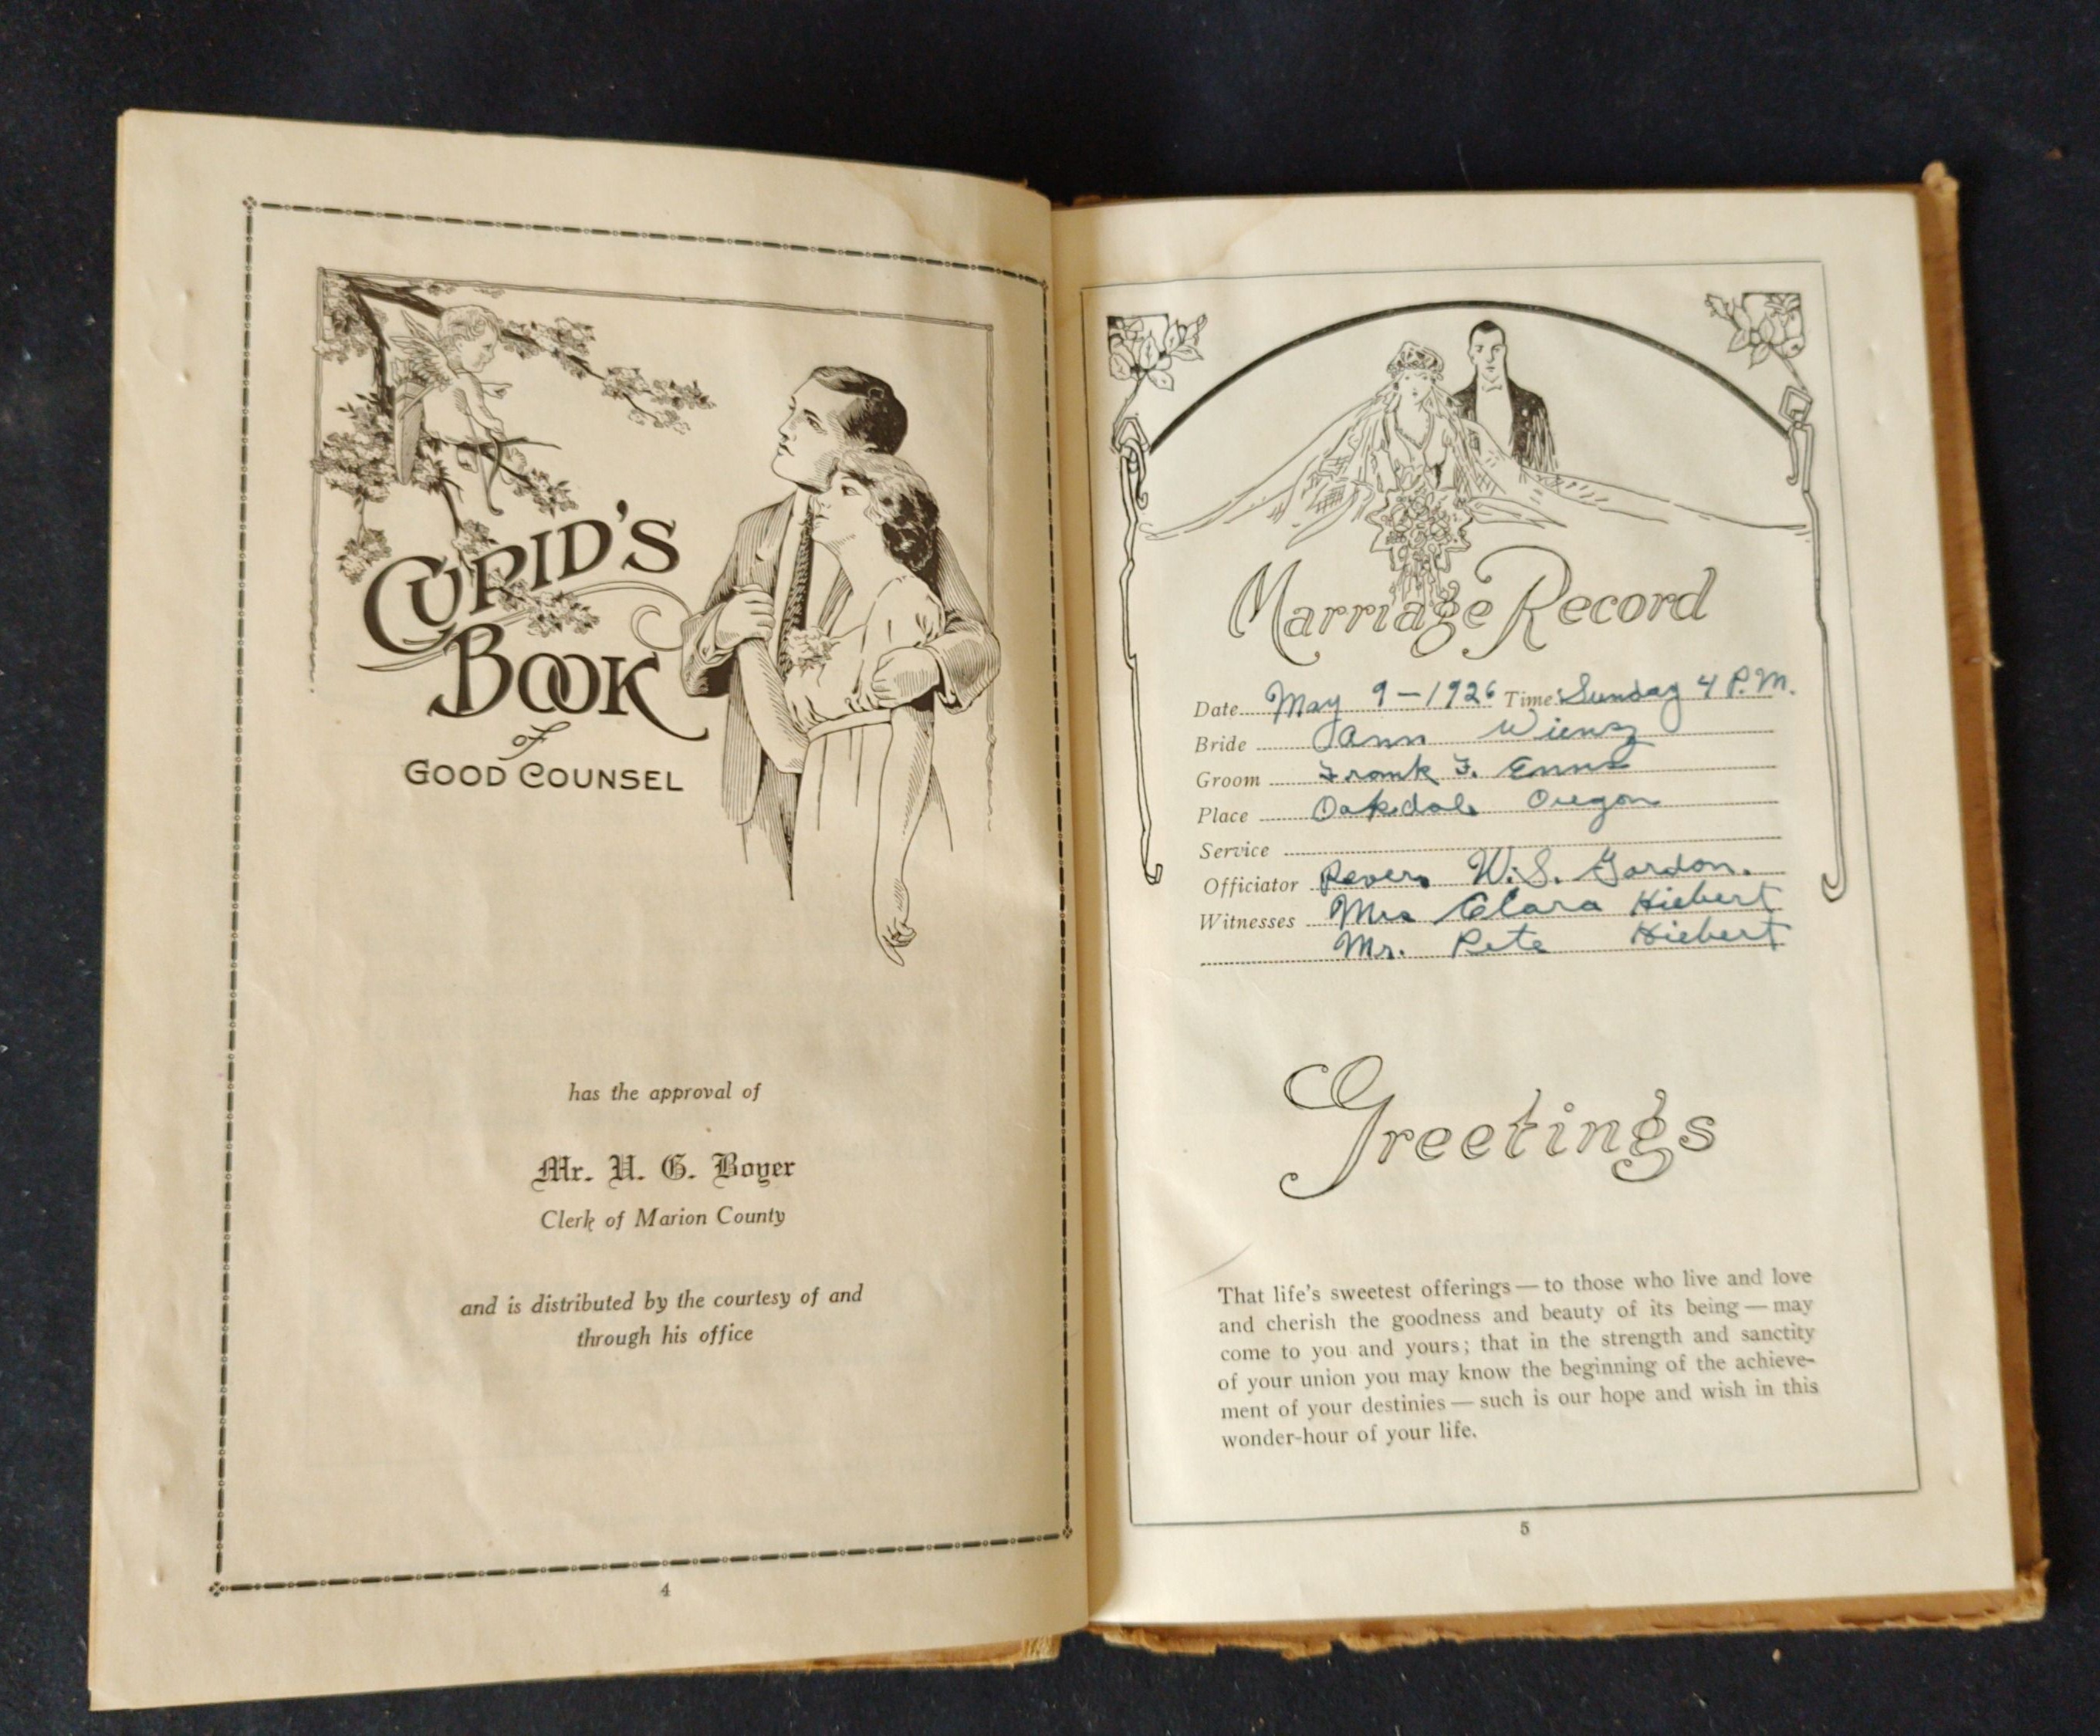 CUPID'S
BOOK
of
GOOD COUNSEL
has the approval of
Mr. U. G. Boyer
Clerk of Marion County
and is distributed by the courtesy of and
through his office
4
Marriage Record
Date May 9-1926 Time Sunday 4 P.M.
Bride Ann Wiens
Groom Frank F. Enns
Place Oakdale Oregon
Service
Officiator W.S. Gordon.
Witnesses Mrs Clara Hiebert
Mr. Pete Hiebert
Greetings
That life's sweetest offerings — to those who live and love
and cherish the goodness and beauty of its being — may
come to you and yours; that in the strength and sanctity
of your union you may know the beginning of the achieve-
ment of your destinies — such is our hope and wish in this
wonder-hour of your life.
5